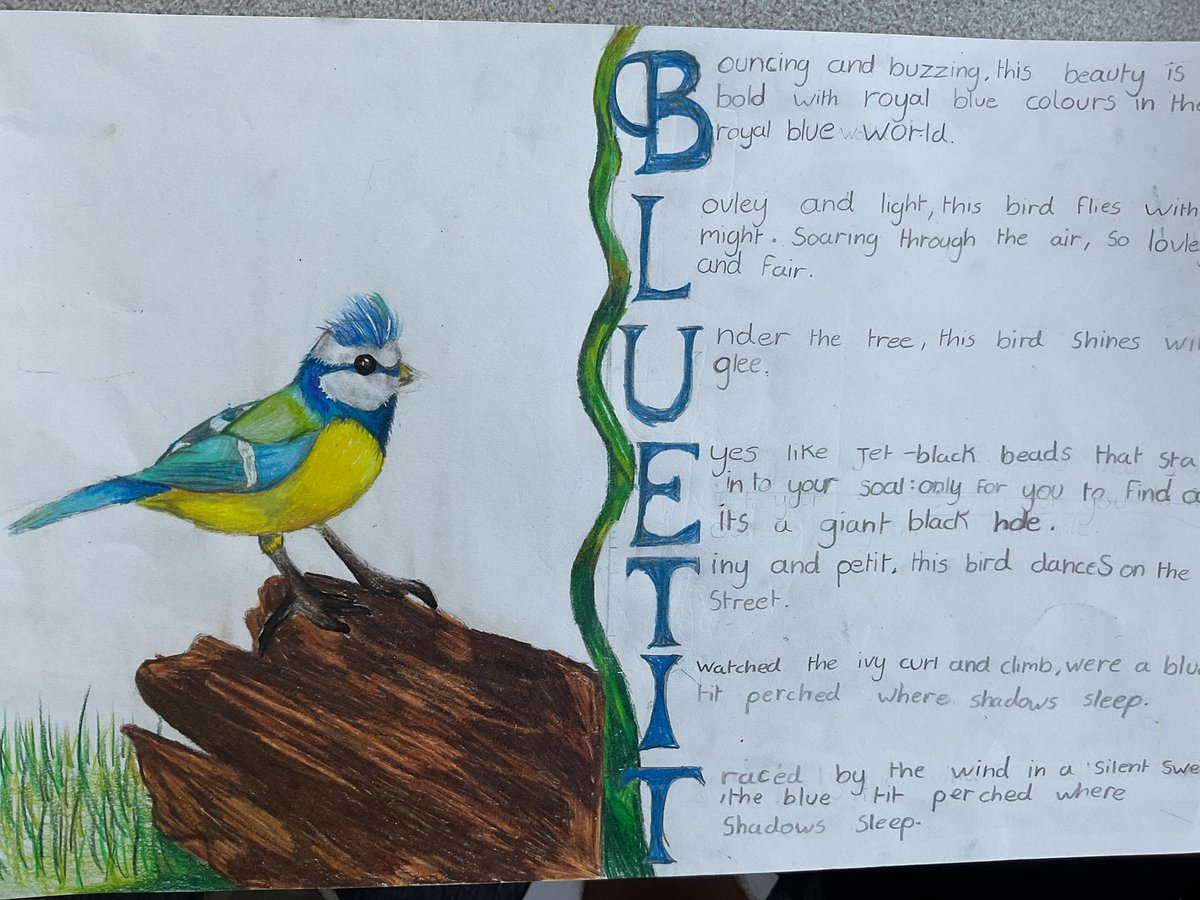 Bouncing and buzzing, this beauty is
bold with royal blue colours in the
royal blue world.
Lovley and light, this bird flies with
might. Soaring through the air, so lovley
and fair.
Under the tree, this bird shines
glee.
Eyes like jet-black beads that
in to your soal: only for you to find
its a giant black hole.
Tiny and petit, this bird dances on the
street.
I watched the ivy curl and climb, were a blue
tit perched where shadows sleep.
Traced by the wind in a silent
, the blue tit perched where
shadows sleep.